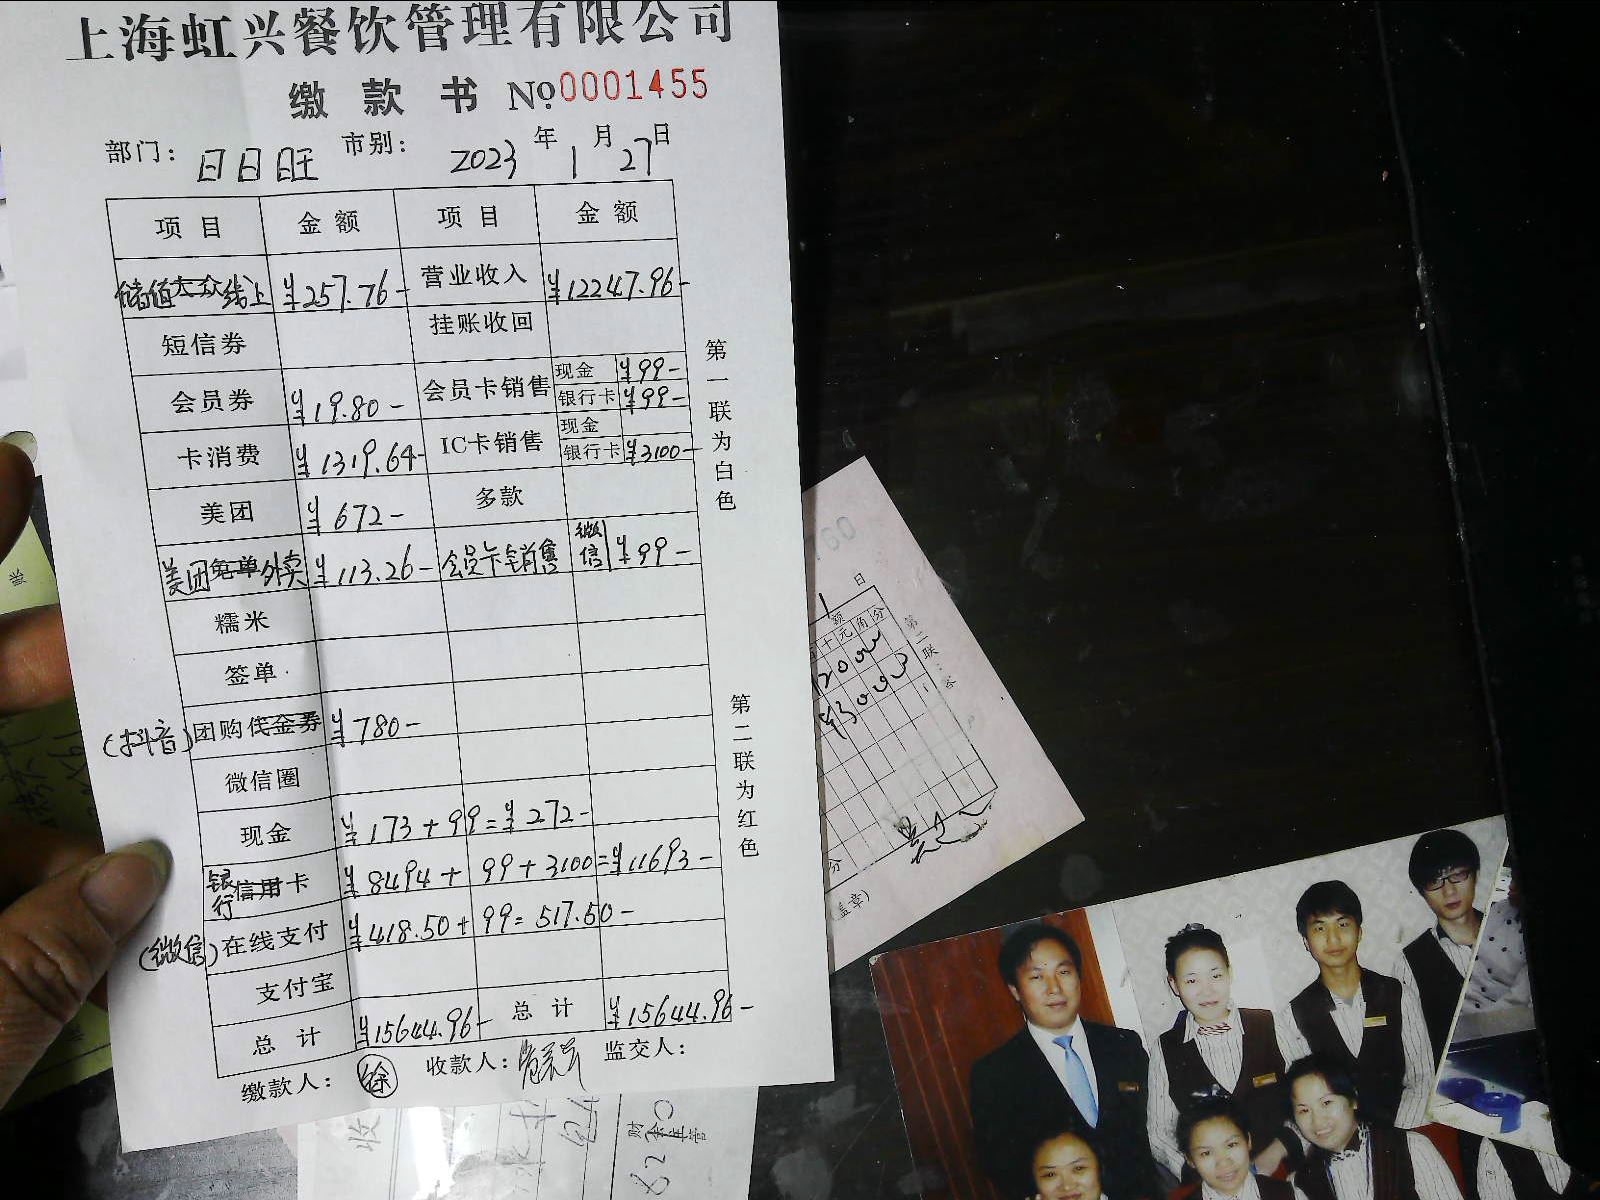 上海虹兴餐饮管理有限公司
缴款书 No 0001455
部门：日日旺 市别： 2023年1月27日
项目 金额 项目 金额
储值大众线上 ¥257.76- 营业收入 ¥12247.96-
短信券 挂账收回
会员券 ¥19.80- 会员卡销售 现金 ¥99-
银行卡 ¥99-
卡消费 ¥1319.64- IC卡销售 现金
银行卡 ¥3100-
美团 ¥672- 多款
美团免单外卖 ¥113.26- 会员卡销售 微信 ¥99-
糯米
签单
(抖音)团购代金券 ¥780-
微信圈
现金 ¥173+99=¥272-
银行信用卡 ¥8494+99+3100=¥11693-
(微信)在线支付 ¥418.50+99=517.50-
支付宝
总计 ¥15644.96- 总计 ¥15644.96-
缴款人：徐 收款人： 监交人：
第一联为白色
第二联为红色
日
额
十元角分
第二联：
分
(盖章)
收